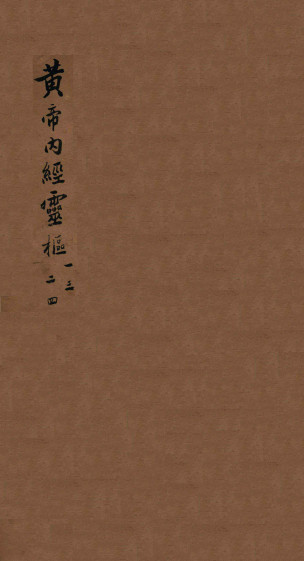 黄帝内經靈樞
一三
二四